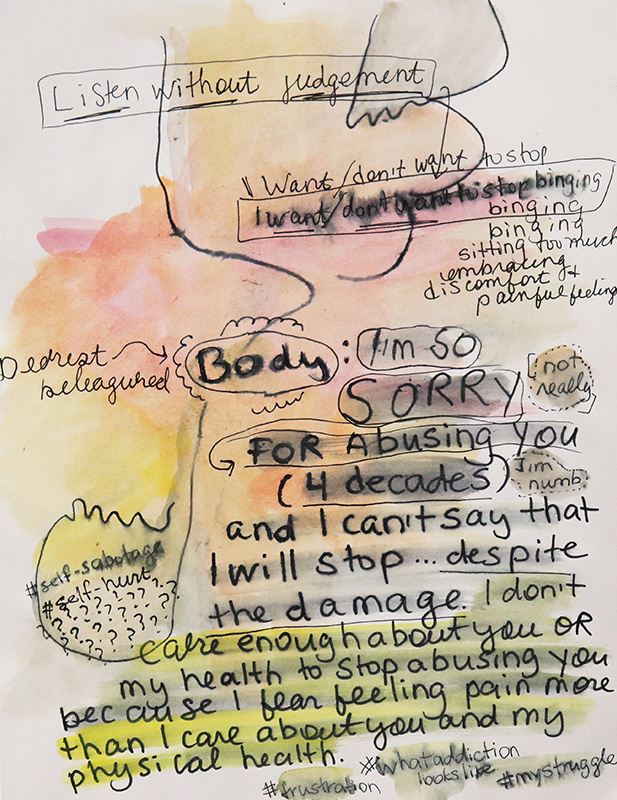 Listen without judgement
I want/don't want to stop
I want/don't want to stop binging
binging
binging
sitting too much
embracing
discomfort +
painful feelings
Dearest
beleagured
Body: I'm so
SORRY
[not
really]
FOR Abusing you
(4 decades)
I'm
numb
and I can't say that
I will stop... despite
the damage. I don't
care enough about you OR
my health to stop abusing you
because I fear feeling pain more
than I care about you and my
physical health.
#self-sabotage
#self-hurt
? ? ? ? ? ?
#frustration
#whataddiction
lookslike
#mystruggle